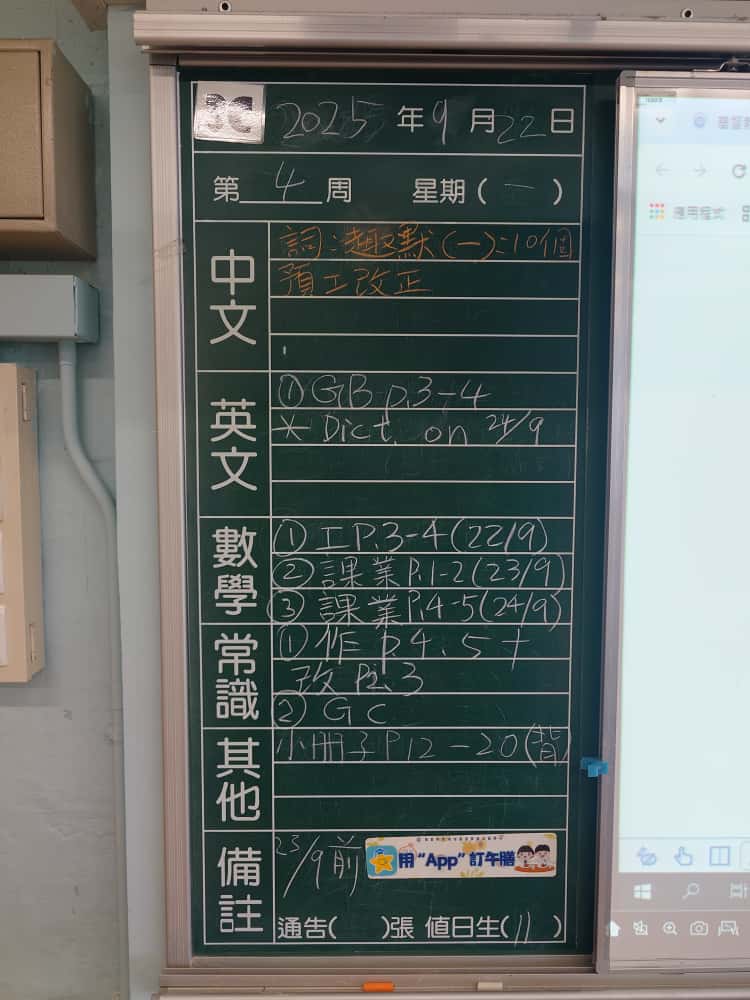 3C 2025 年 9 月 22 日
第 4 周 星期 ( 一 )
中文
詞:趣默(一):10個
預工改正
英文
① GB p.3-4
* Dict. on 24/9
數學
① 工P.3-4(22/9)
② 課業P.1-2(23/9)
③ 課業P.4-5(24/9)
常識
① 作 p.4、5 +
改 P2.3
② GC
其他
小冊子P12-20(背)
備註
23/9前
用“App”訂午膳
通告( )張 值日生( 11 )
應用程式